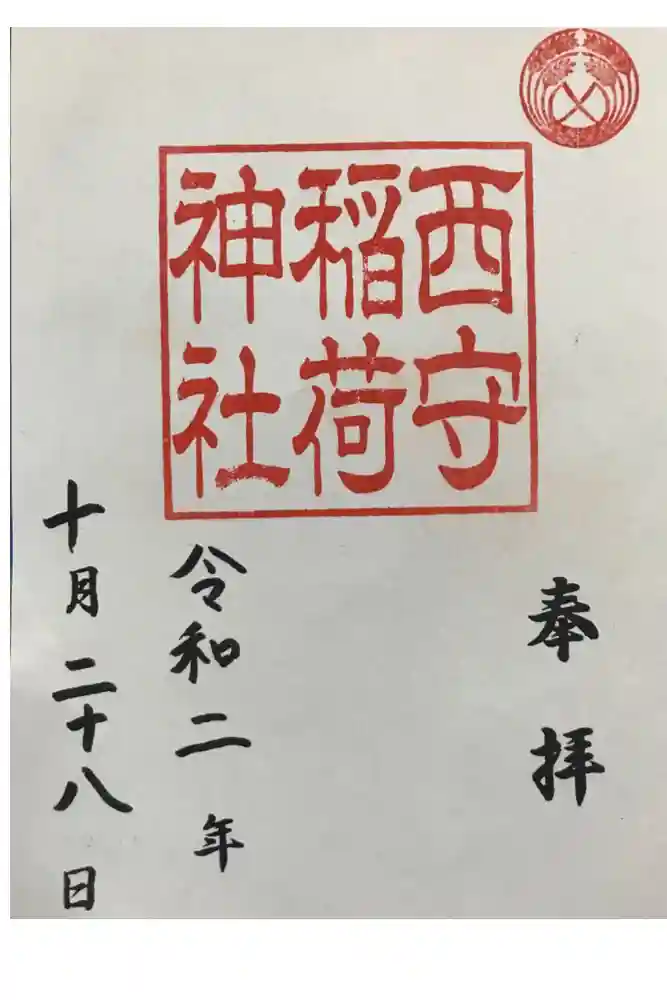 奉拝
西守
稲荷
神社
令和二年
十月二十八日